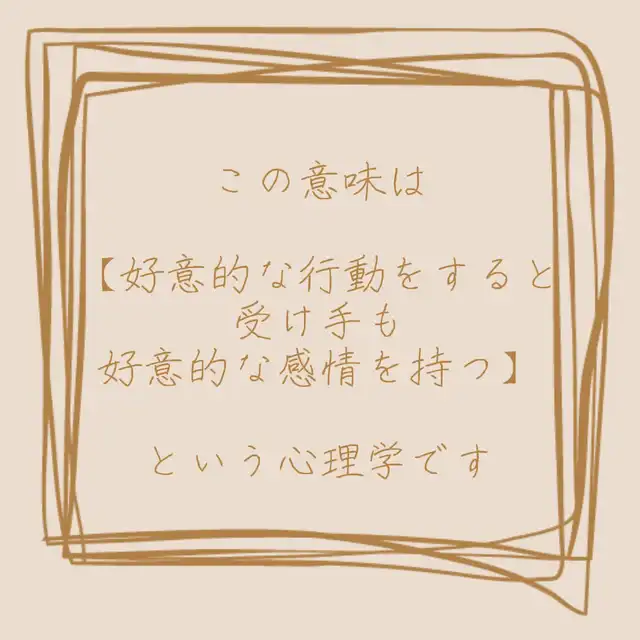 この意味は
【好意的な行動をすると
受け手も
好意的な感情を持つ】
という心理学です